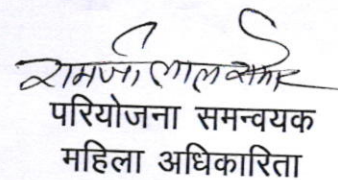 रामजी लाल
परियोजना समन्वयक
महिला अधिकारिता